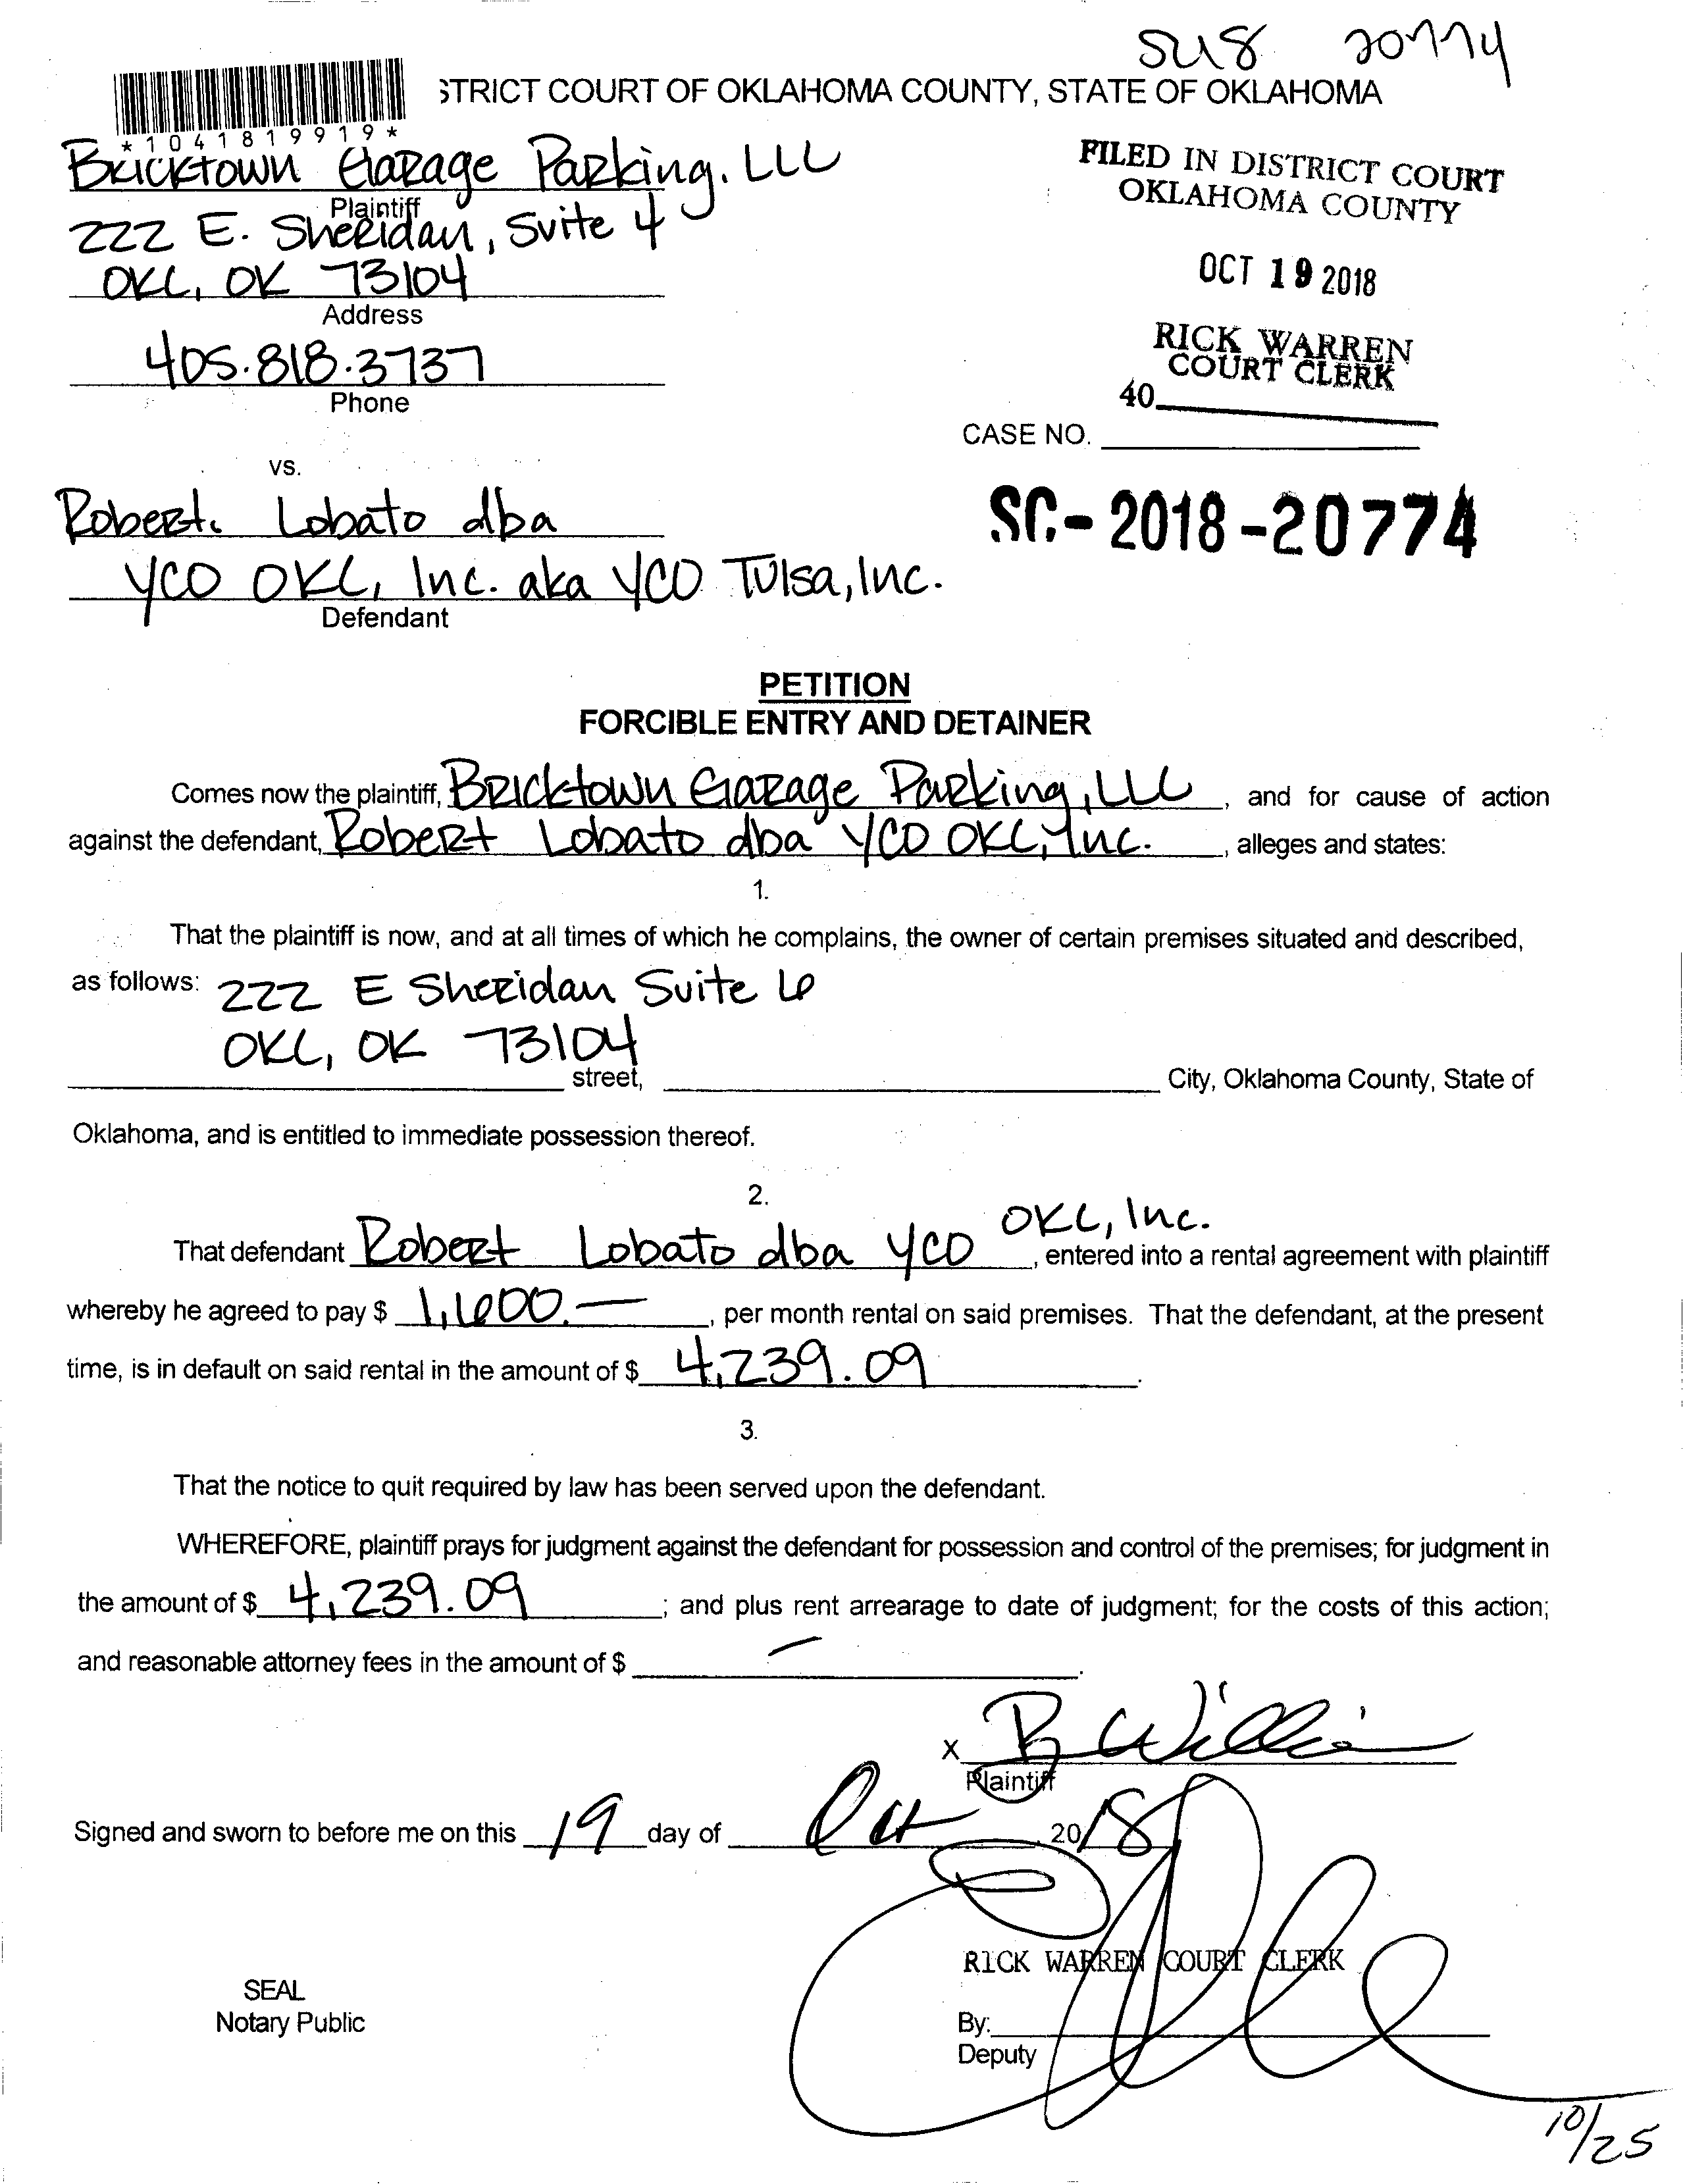 SC18 20774
STRICT COURT OF OKLAHOMA COUNTY, STATE OF OKLAHOMA
*1041819919*
Bricktown Garage Parking, LLC
Plaintiff
222 E. Sheridan, Suite 4
OKC, OK 73104
Address
405.818.3737
Phone
FILED IN DISTRICT COURT
OKLAHOMA COUNTY
OCT 19 2018
RICK WARREN
COURT CLERK
40
CASE NO.
SC-2018-20774
vs.
Robert Lobato dba
YCO OKC, Inc. aka YCO Tulsa, Inc.
Defendant
PETITION
FORCIBLE ENTRY AND DETAINER
Comes now the plaintiff, Bricktown Garage Parking, LLC, and for cause of action
against the defendant, Robert Lobato dba YCO OKC, Inc., alleges and states:
1.
That the plaintiff is now, and at all times of which he complains, the owner of certain premises situated and described,
as follows: 222 E Sheridan Suite 6
OKC, OK 73104
street, City, Oklahoma County, State of
Oklahoma, and is entitled to immediate possession thereof.
2.
That defendant Robert Lobato dba YCO OKC, Inc., entered into a rental agreement with plaintiff
whereby he agreed to pay $ 1,600.—, per month rental on said premises. That the defendant, at the present
time, is in default on said rental in the amount of $ 4,239.09.
3.
That the notice to quit required by law has been served upon the defendant.
WHEREFORE, plaintiff prays for judgment against the defendant for possession and control of the premises; for judgment in
the amount of $ 4,239.09; and plus rent arrearage to date of judgment; for the costs of this action;
and reasonable attorney fees in the amount of $ —.
x B Willi
Plaintiff
Signed and sworn to before me on this 19 day of Oct, 2018
RICK WARREN COURT CLERK
SEAL
Notary Public
By:
Deputy
10/25